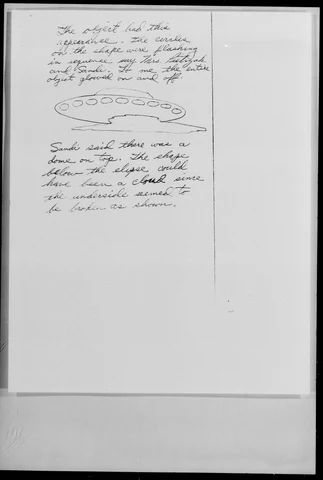 The object had this
appearance. The circles
on the shape were flashing
in sequence say Mrs.
and Sandi. To me the entire
object glowed on and off.
Sandi said there was a
dome on top. The shape
below the elipse could
have been a cloud since
the underside seemed to
be broken as shown.